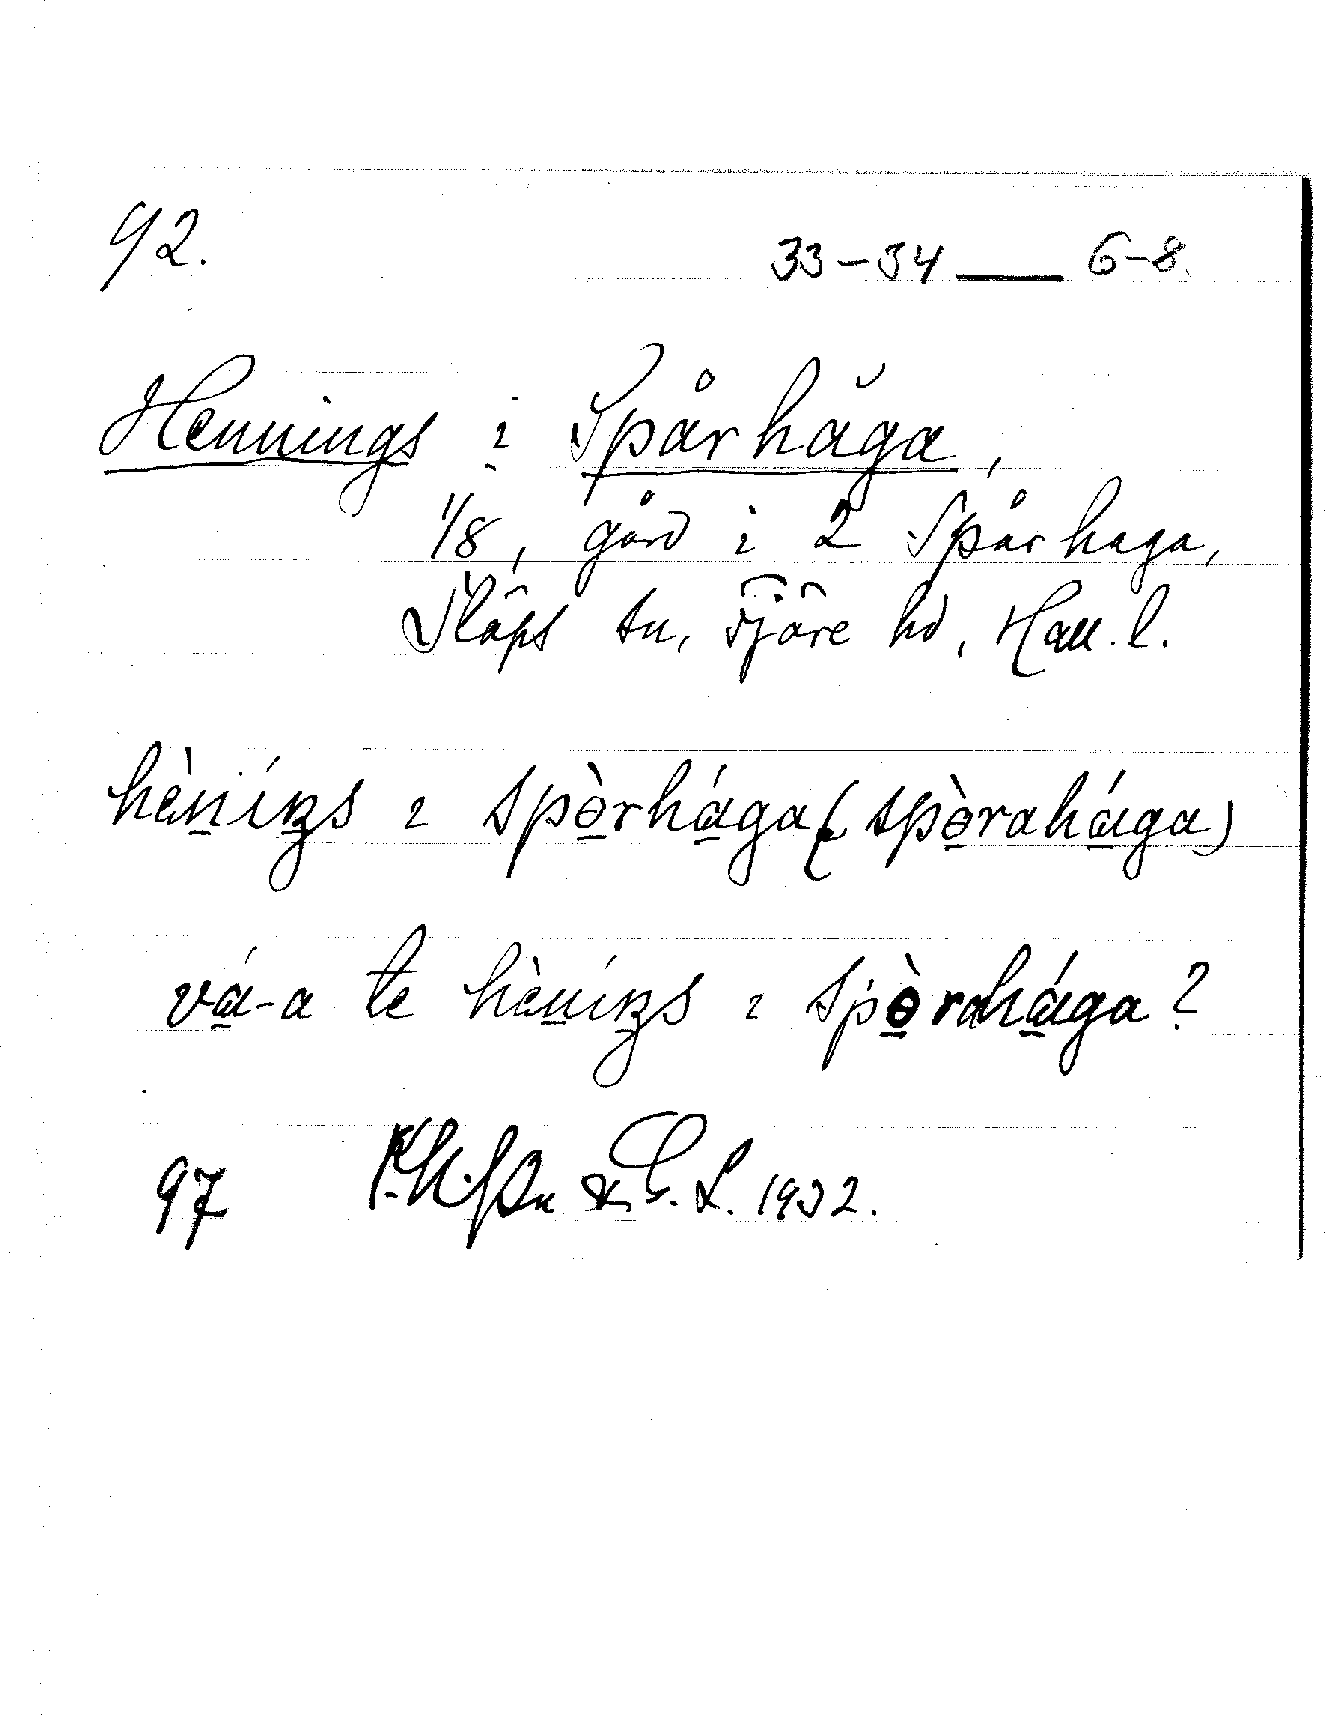 92.
33-34 — 6-8.
Hennings i Spårhåga,
1/8, gård i 2 Spårhaga,
Släps sn, Fjäre hd, Hall. l.
hèníŋs ı spɵ̀rhága (spɵ̀rahága)
vá-a te hèníŋs ı spɵ̀rahága?
97 1932.